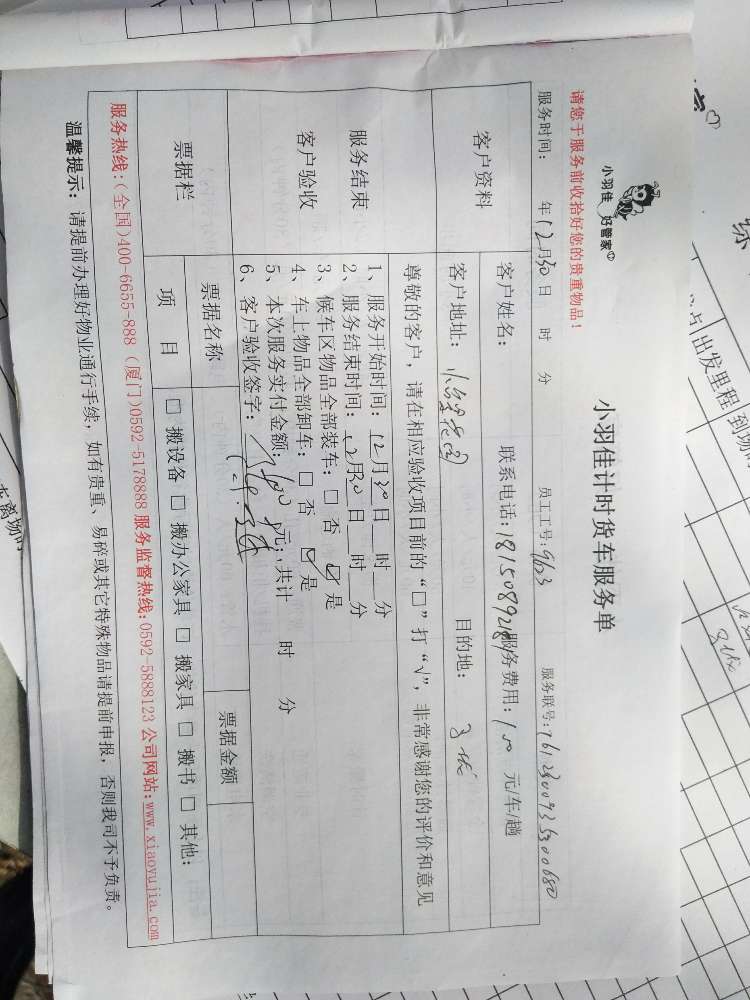 小羽佳 好管家
小羽佳计时货车服务单
请您于服务前收拾好您的贵重物品！
服务时间： 年12月30日 时 分 员工工号：9623 服务联号：
客户资料
客户姓名： 联系电话： 服务费用：100 元/车/趟
客户地址： 目的地：
尊敬的客户，请在相应验收项目前的“□”打“√”，非常感谢您的评价和意见
服务结束
客户验收
1、服务开始时间：12月30日 时 分
2、服务结束时间：12月30日 时 分
3、候车区物品全部装车：□ 否 ☑ 是
4、车上物品全部卸车：□ 否 ☑ 是
5、本次服务实付金额： 元；共计 时 分
6、客户验收签字：
票据栏
票据名称 票据金额
项 目 □ 搬设备 □ 搬办公家具 □ 搬家具 □ 搬书 □ 其他：
服务热线：(全国)400-6655-888 (厦门)0592-5178888 服务监督热线：0592-5888123 公司网站：www.xiaoyujia.com
温馨提示：请提前办理好物业通行手续，如有贵重、易碎或其它特殊物品请提前申报，否则我司不予负责。
出发里程